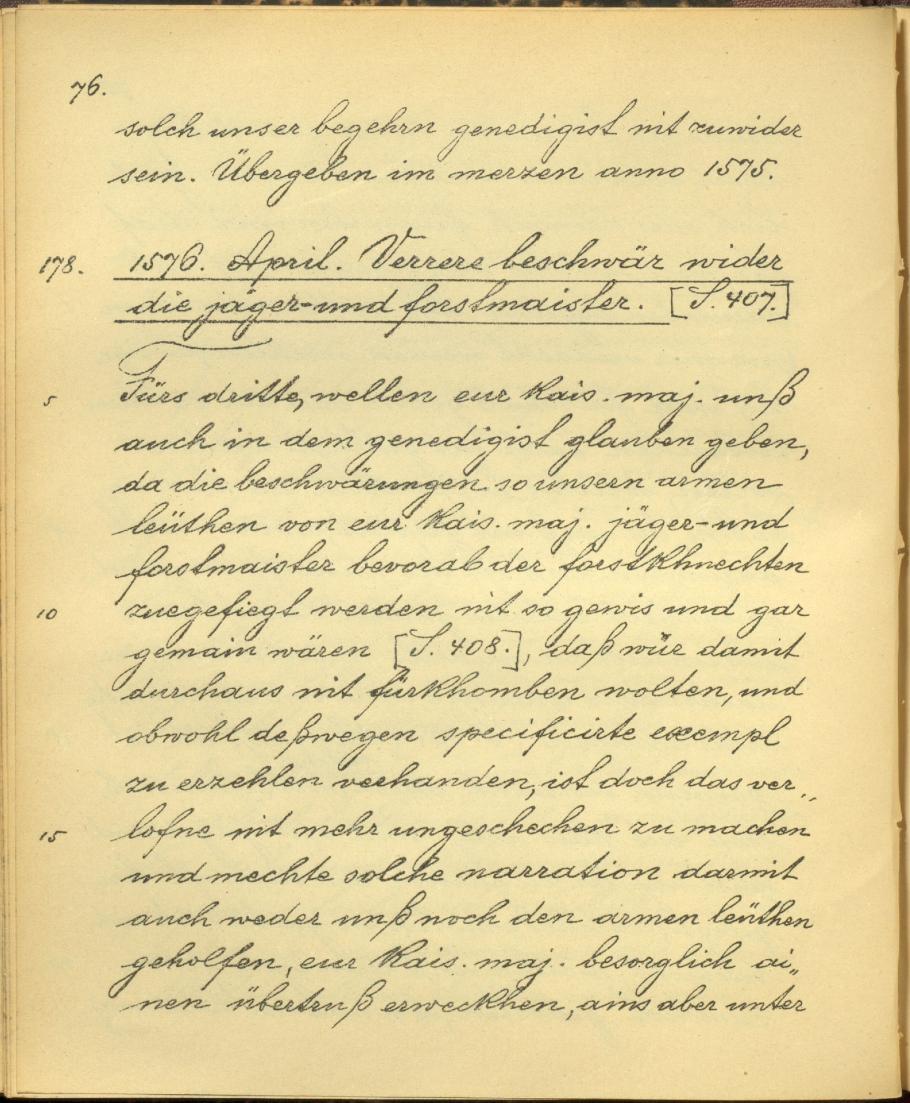 76.
solch unser begehrn genedigist nit zuwider
sein. Übergeben im merzen anno 1575.
178. 1576. April. Verrere beschwär wider
die jäger- und forstmaister. [S. 407.]
5 Fürs dritte, wellen eur kais. maj. unß
auch in dem genedigist glauben geben,
da die beschwärungen so unsern armen
leüthen von eur kais. maj. jäger- und
forstmaister bevorab der forstkhnechten
10 zuegefiegt werden nit so gewis und gar
gemain wären [S. 408.], daß wür damit
durchaus nit fürkhomben wolten, und
obwohl deßwegen specificirte exempl
zu erzehlen verhanden, ist doch das ver„
15 lofne nit mehr ungeschechen zu machen
und mechte solche narration darmit
auch weder unß noch den armen leüthen
geholfen, eur kais. maj. besorglich ai„
nen übertruß erweckhen, ains aber unter